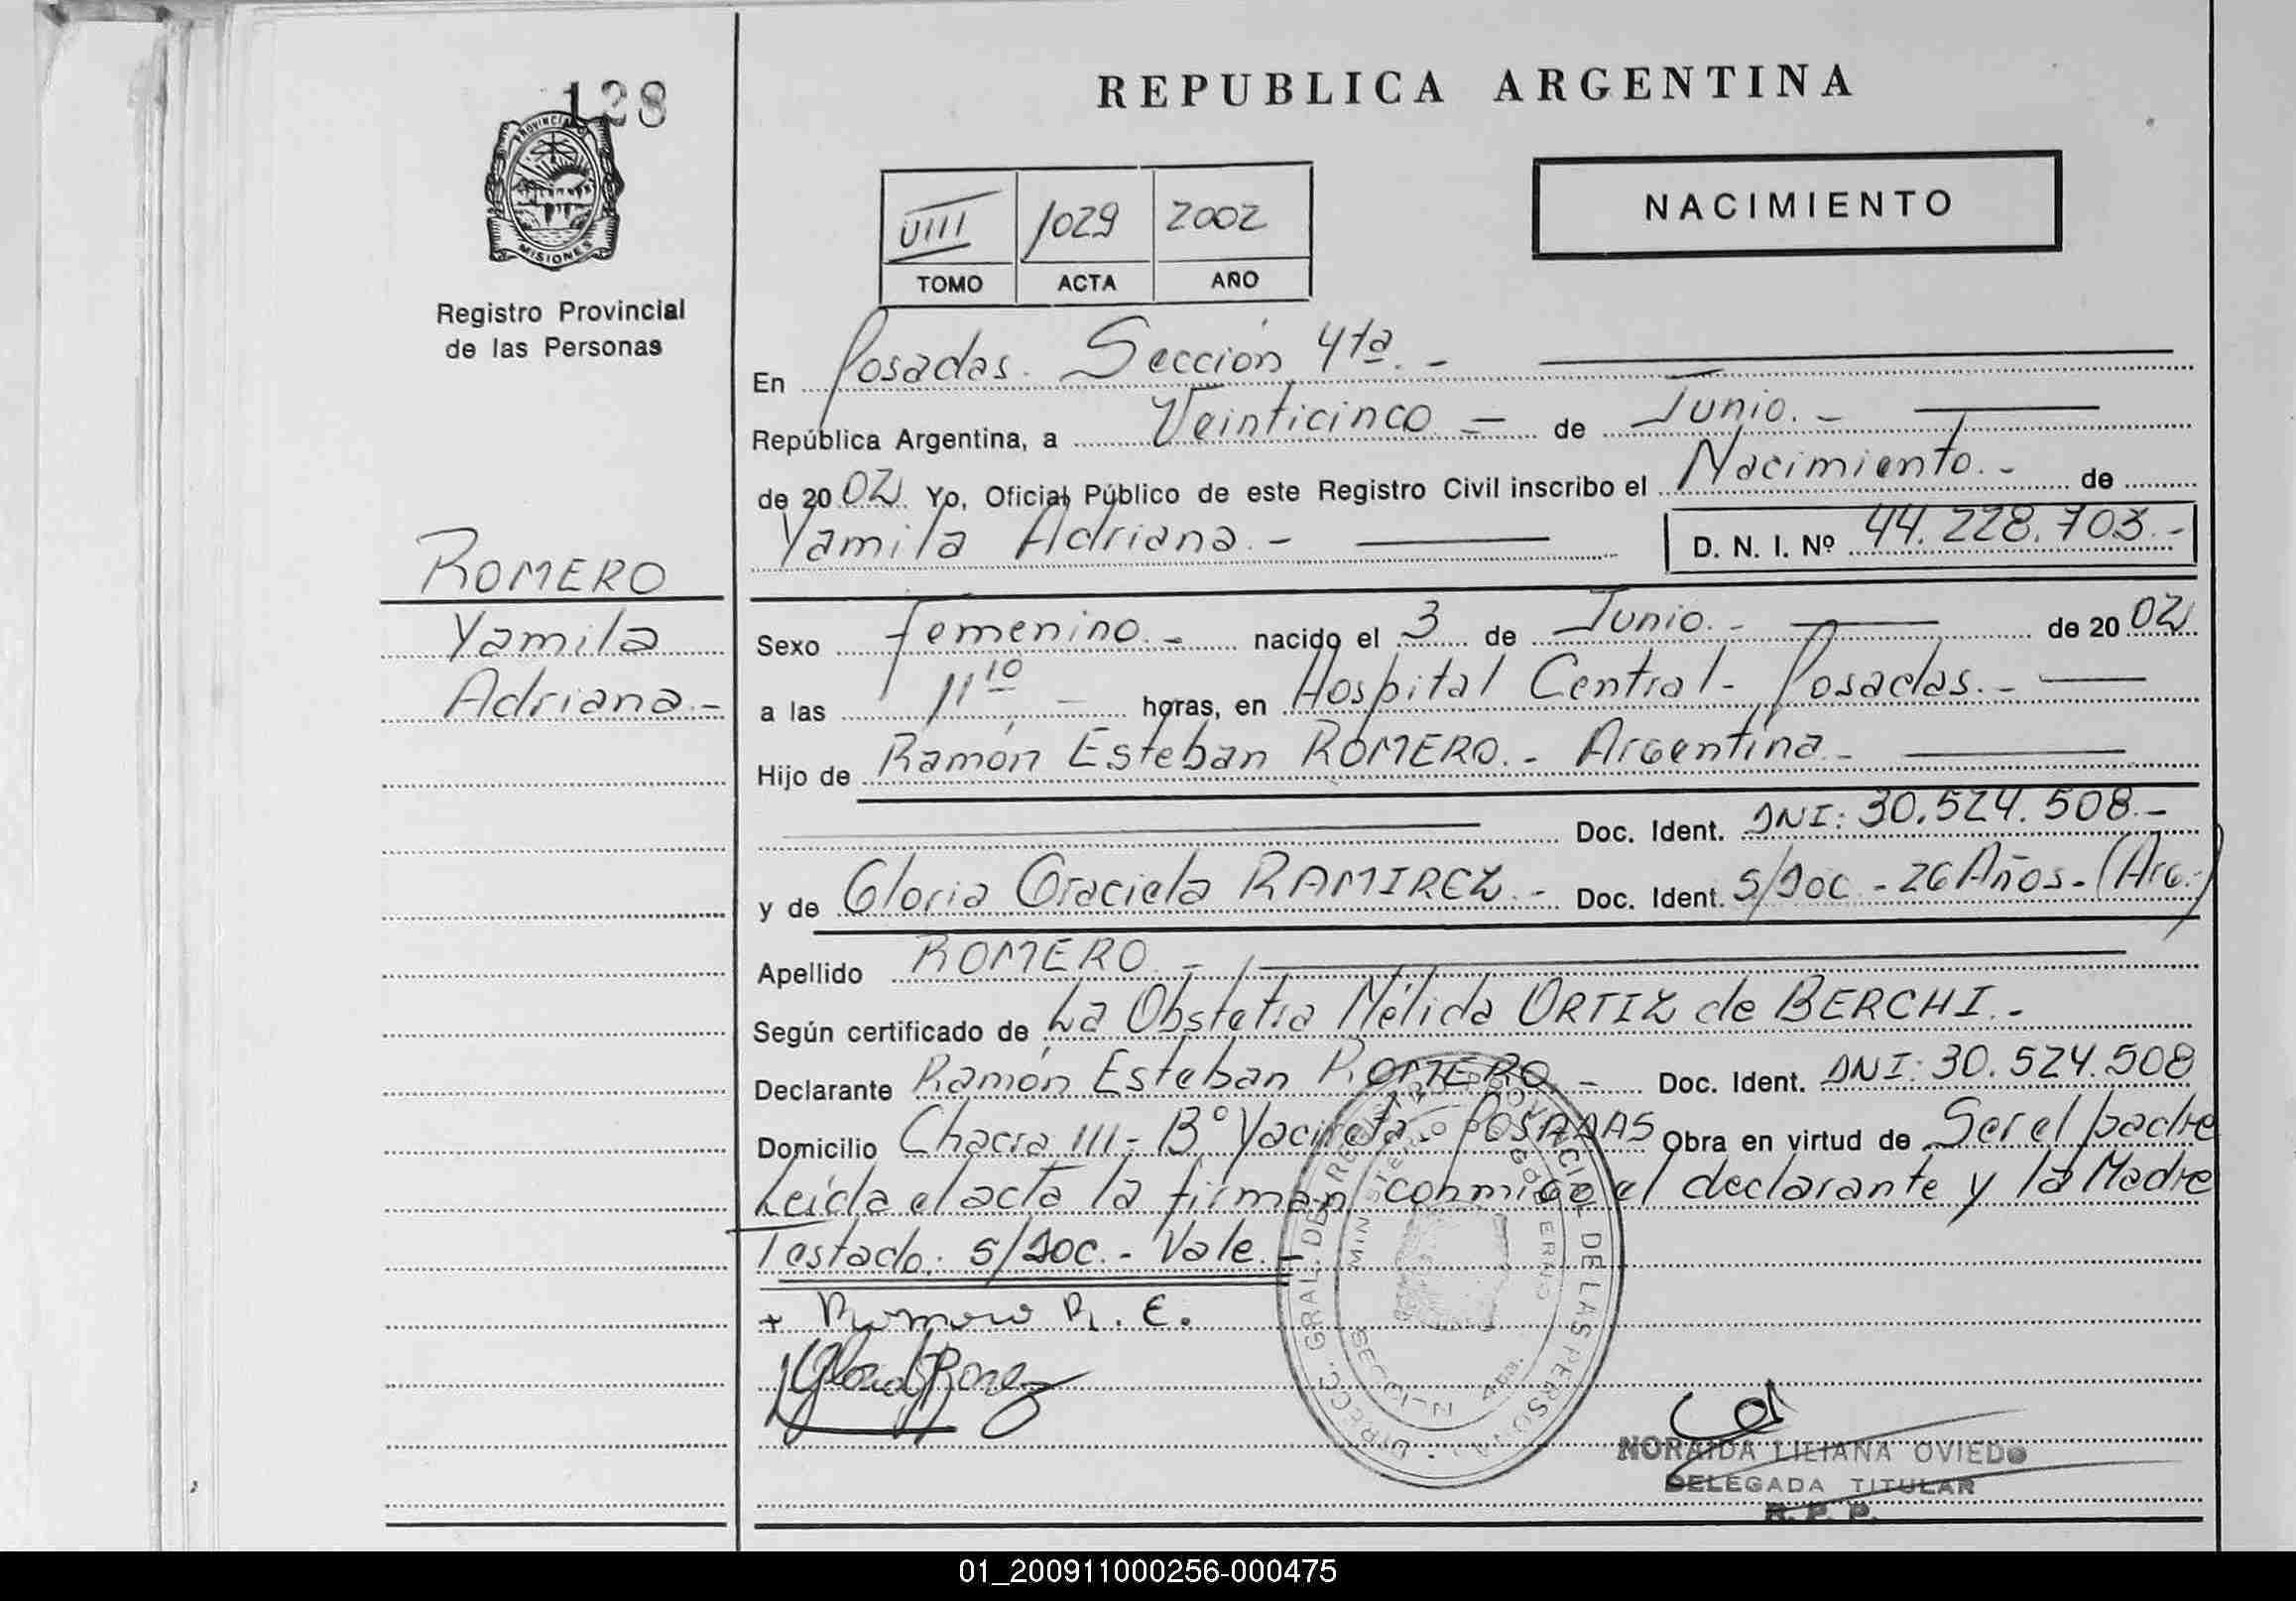 128
PROVINCIA
MISIONES
Registro Provincial
de las Personas
ROMERO
Yamila
Adriana.-
REPUBLICA ARGENTINA
NACIMIENTO
VIII 1029 2002
TOMO ACTA AÑO
En Posadas. Sección 4ta.-
República Argentina, a Veinticinco - de Junio.-
de 2002 Yo, Oficial Público de este Registro Civil inscribo el Nacimiento.- de
Yamila Adriana.- D. N. I. Nº 44.228.703.-
Sexo femenino.- nacido el 3 de Junio.- de 2002
a las 11 10 - horas, en Hospital Central- Posadas.-
Hijo de Ramón Esteban ROMERO.- Argentina.-
Doc. Ident. DNI: 30.524.508.-
y de Gloria Graciela RAMIREZ.- Doc. Ident. S/Doc.- 26 Años-(Arg.-)
Apellido ROMERO.-
Según certificado de La Obstetra Mélida ORTIZ de BERCHI.-
Declarante Ramón Esteban ROMERO.- Doc. Ident. DNI: 30.524.508
Domicilio Chacra 111- Bº Yacireta. POSADAS Obra en virtud de Ser el padre
Leída el acta la firman conmigo el declarante y la Madre
Testado: S/Doc.- Vale.-
+ Romero R. E.
DIRECC. GRAL. DEL REGISTRO PROVINCIAL DE LAS PERSONAS
MINISTERIO DE GOBIERNO
NORAIDA LILIANA OVIEDO
DELEGADA TITULAR
R. P. P.
01_200911000256-000475